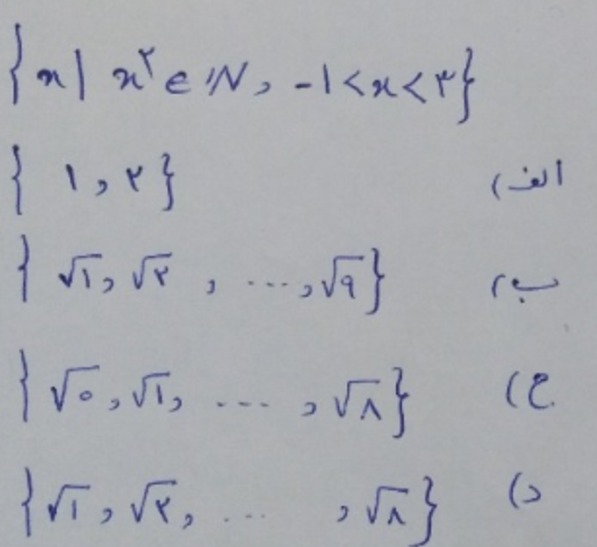 {x | x² ∈ IN , -۱ < x < ۳}
الف) {۱ , ۲}
ب) {√۱ , √۲ , ... , √۹}
ج) {√۰ , √۱ , ... , √۸}
د) {√۱ , √۲ , ... , √۸}